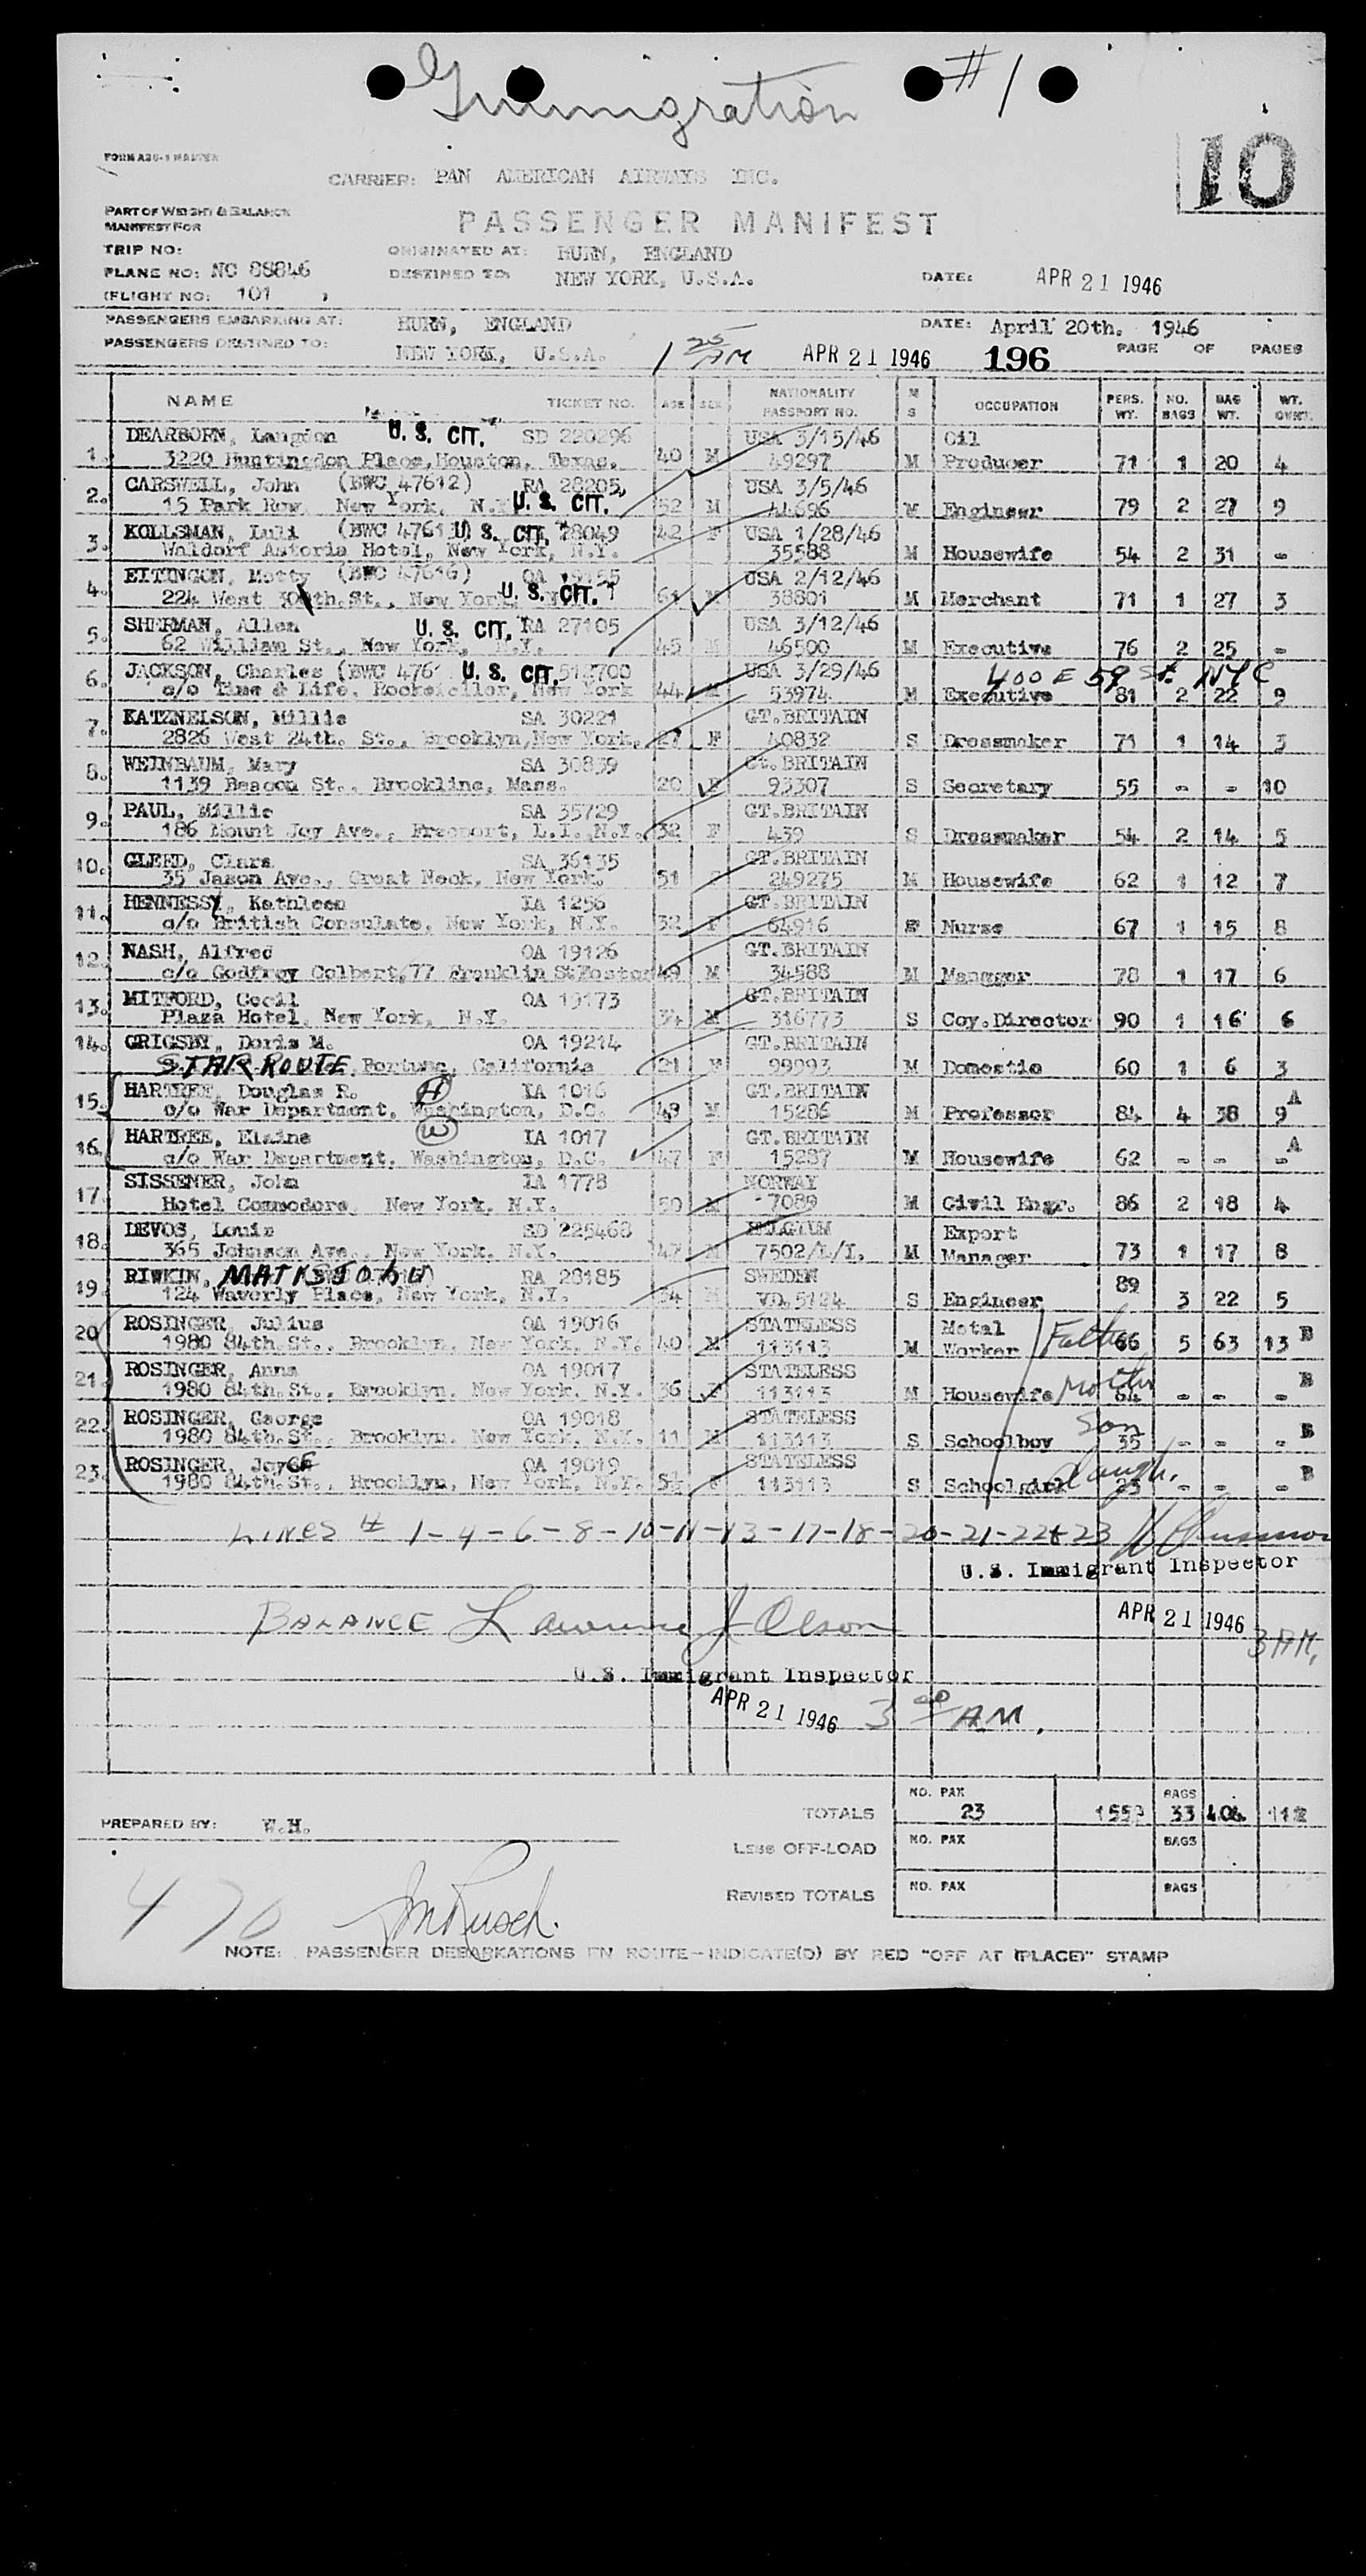 Immigration #1
FORM A20-1 MASTER
10
CARRIER: PAN AMERICAN AIRWAYS INC.
PART OF WEIGHT & BALANCE
MANIFEST FOR
PASSENGER MANIFEST
TRIP NO: ORIGINATED AT: HURN, ENGLAND
PLANE NO: NC 88846 DESTINED TO: NEW YORK, U.S.A. DATE: APR 21 1946
(FLIGHT NO: 101 )
PASSENGERS EMBARKING AT: HURN, ENGLAND DATE: April 20th. 1946
PASSENGERS DESTINED TO: NEW YORK, U.S.A. 1 25 AM APR 21 1946 196 PAGE OF PAGES
NAME TICKET NO. AGE SEX NATIONALITY PASSPORT NO. M S OCCUPATION PERS. WT. NO. BAGS BAG WT. WT.
DEARBORN, Langdon U. S. CIT. SD 220296 USA 3/15/46 Oil
1. 3220 Huntingdon Place, Houston, Texas. 40 M 49297 M Producer 71 1 20 4
2. CARSWELL, John (BWC 47612) RA 28205 USA 3/5/46
15 Park Row New York, N.Y. U. S. CIT. 52 M 44696 M Engineer 79 2 27 9
KOLLSMAN, Luli (BWC 4761 U. S. CIT. 28049 42 F USA 1/28/46
3. Waldorf Astoria Hotel, New York, N.Y. 35588 M Housewife 54 2 31 -
EITINGON, Motty (BWC 47616) OA USA 2/12/46
4. 224 West 30th. St., New York, U. S. CIT. 61 M 38801 M Merchant 71 1 27 3
SHERMAN, Allen U. S. CIT. RA 27105 USA 3/12/46
5. 62 William St., New York, N.Y. 45 M 46500 M Executive 76 2 25 -
JACKSON, Charles (BWC 476 U. S. CIT. 512700 USA 3/29/46 400 E 59 St. NYC
6. c/o Time & Life, Rockefeller, New York 44 M 53974 M Executive 81 2 22 9
KATZNELSON, Millie SA 30221 GT.BRITAIN
7. 2826 West 24th. St., Brooklyn, New York. 27 F 40832 S Dressmaker 71 1 14 3
WEINBAUM, Mary SA 30839 Gt.BRITAIN
8. 1139 Beacon St., Brookline, Mass. 20 F 93307 S Secretary 55 - - 10
PAUL, Millie SA 35729 GT.BRITAIN
9. 186 Mount Joy Ave., Freeport, L.I., N.Y. 32 F 439 S Dressmaker 54 2 14 5
GLEED, Clara SA 36135 GT.BRITAIN
10. 35 Jason Ave., Great Neck, New York. 51 249275 M Housewife 62 1 12 7
HENNESSY, Kathleen IA 1256 GT.BRITAIN
11. c/o British Consulate, New York, N.Y. 32 F 64916 Nurse 67 1 15 8
NASH, Alfred OA 19126 GT.BRITAIN
12. c/o Godfrey Colbert, 77 Franklin St Boston 49 M 34588 M Manager 78 1 17 6
MITFORD, Cecil OA 19173 GT.BRITAIN
13. Plaza Hotel, New York, N.Y. 34 M 316773 S Coy.Director 90 1 16 6
14. GRIGSBY, Doris M. OA 19214 GT.BRITAIN
STAR ROUTE, Fortuna, California 21 F 99993 M Domestic 60 1 6 3
HARTREE, Douglas R. H IA 1016 GT.BRITAIN
15. c/o War Department, Washington, D.C. 49 M 15286 M Professor 84 4 38 9 A
HARTREE, Elaine W IA 1017 GT.BRITAIN
16. c/o War Department, Washington, D.C. 47 F 15287 M Housewife 62 - - - A
SISSENER, John IA 1778 NORWAY
17. Hotel Commodore, New York, N.Y. 50 M 7089 M Civil Engr. 86 2 18 4
DEVOS, Louis SD 225468 BELGIUM Export
18. 365 Johnson Ave., New York, N.Y. 47 M 7502/L/I. M Manager 73 1 17 8
RIWKIN, RA 28185 SWEDEN
19. 124 Waverly Place, New York, N.Y. 34 VD.5124 S Engineer 89 3 22 5
ROSINGER, Julius OA 19016 STATELESS Metal
20. 1980 84th. St., Brooklyn, New York, N.Y. 40 M 113113 M Worker Father 66 5 63 13 B
ROSINGER, Anna OA 19017 STATELESS
21. 1980 84th. St., Brooklyn, New York, N.Y. 36 F 113113 M Housewife Mother 64 - - - B
ROSINGER, George OA 19018 STATELESS
22. 1980 84th. St., Brooklyn, New York, N.Y. 11 M 113113 S Schoolboy Son 35 - - - B
ROSINGER, Joyce OA 19019 STATELESS
23. 1980 84th. St., Brooklyn, New York, N.Y. F 113113 S Schoolgirl daugh. 23 - - - B
LINES # 1-4-6-8-10-11-13-17-18-20-21-22&23
U.S. Immigrant Inspector
BALANCE Lawrence J Olson APR 21 1946 3 AM,
U.S. Immigrant Inspector
APR 21 1946 3 00 AM.
PREPARED BY: W.H. TOTALS NO. PAX 23 BAGS 33 112
LESS OFF-LOAD NO. PAX BAGS
REVISED TOTALS NO. PAX BAGS
NOTE: PASSENGER DEBARKATIONS EN ROUTE—INDICATE(D) BY RED "OFF AT (PLACE)" STAMP